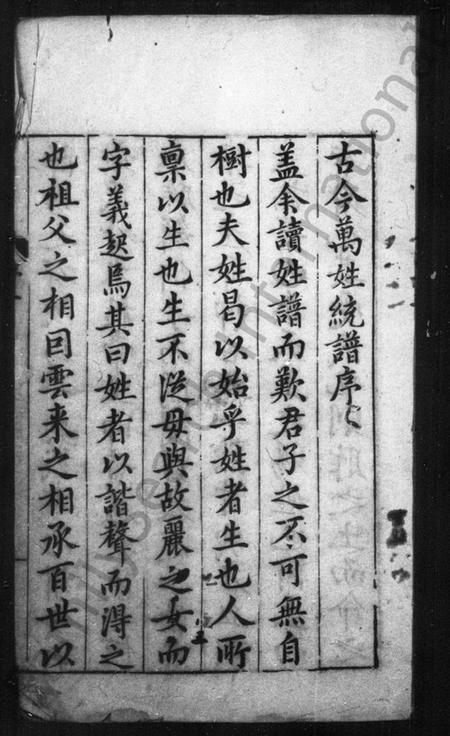 古今萬姓統譜序
蓋余讀姓譜而歎君子之不可無自
樹也夫姓曷以始乎姓者生也人所
禀以生也生不從母與故麗之女而
字義起焉其曰姓者以諧聲而得之
也祖父之相因雲来之相承百世以